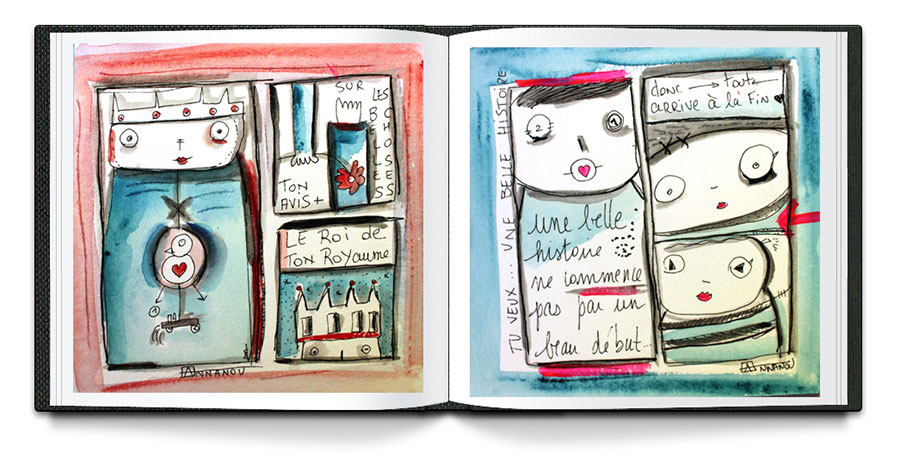 SUR
LES
BELLES
CHOSES
TON
AVIS +
LE Roi de
TON ROYAUME
ANNANOU
TU VEUX... UNE BELLE HISTOIRE
une belle
histoire
ne commence
pas par un
beau début...
donc → tout
arrive à la fin ♥
ANNANOU